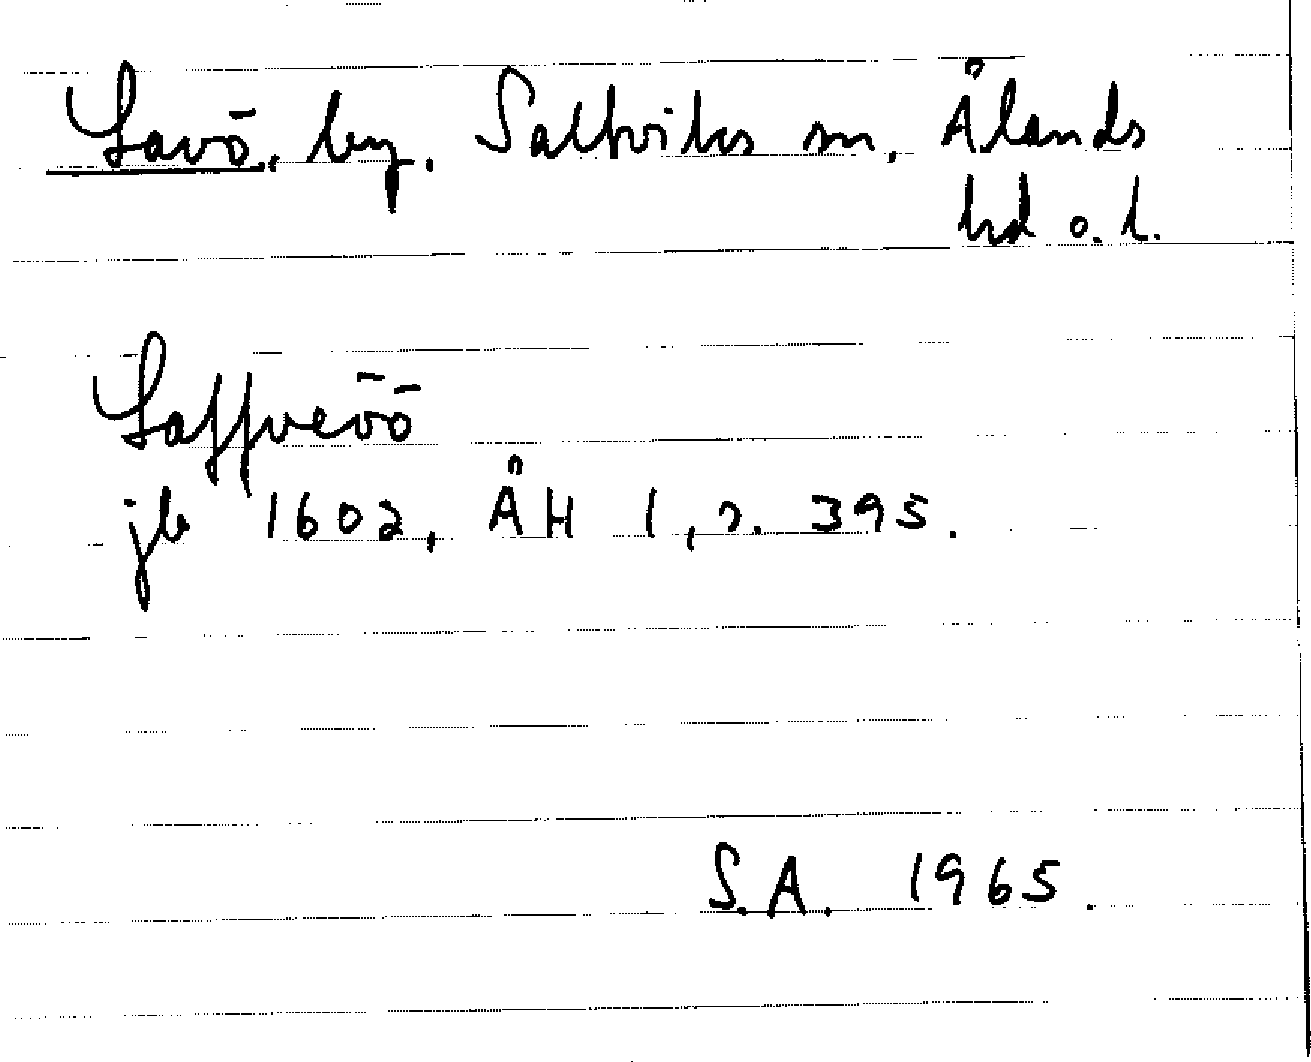 Lavö, by. Saltviks sn. Ålands
hd o. l.
Laffveöö
jb 1602, ÅH 1, s. 395.
S.A. 1965.